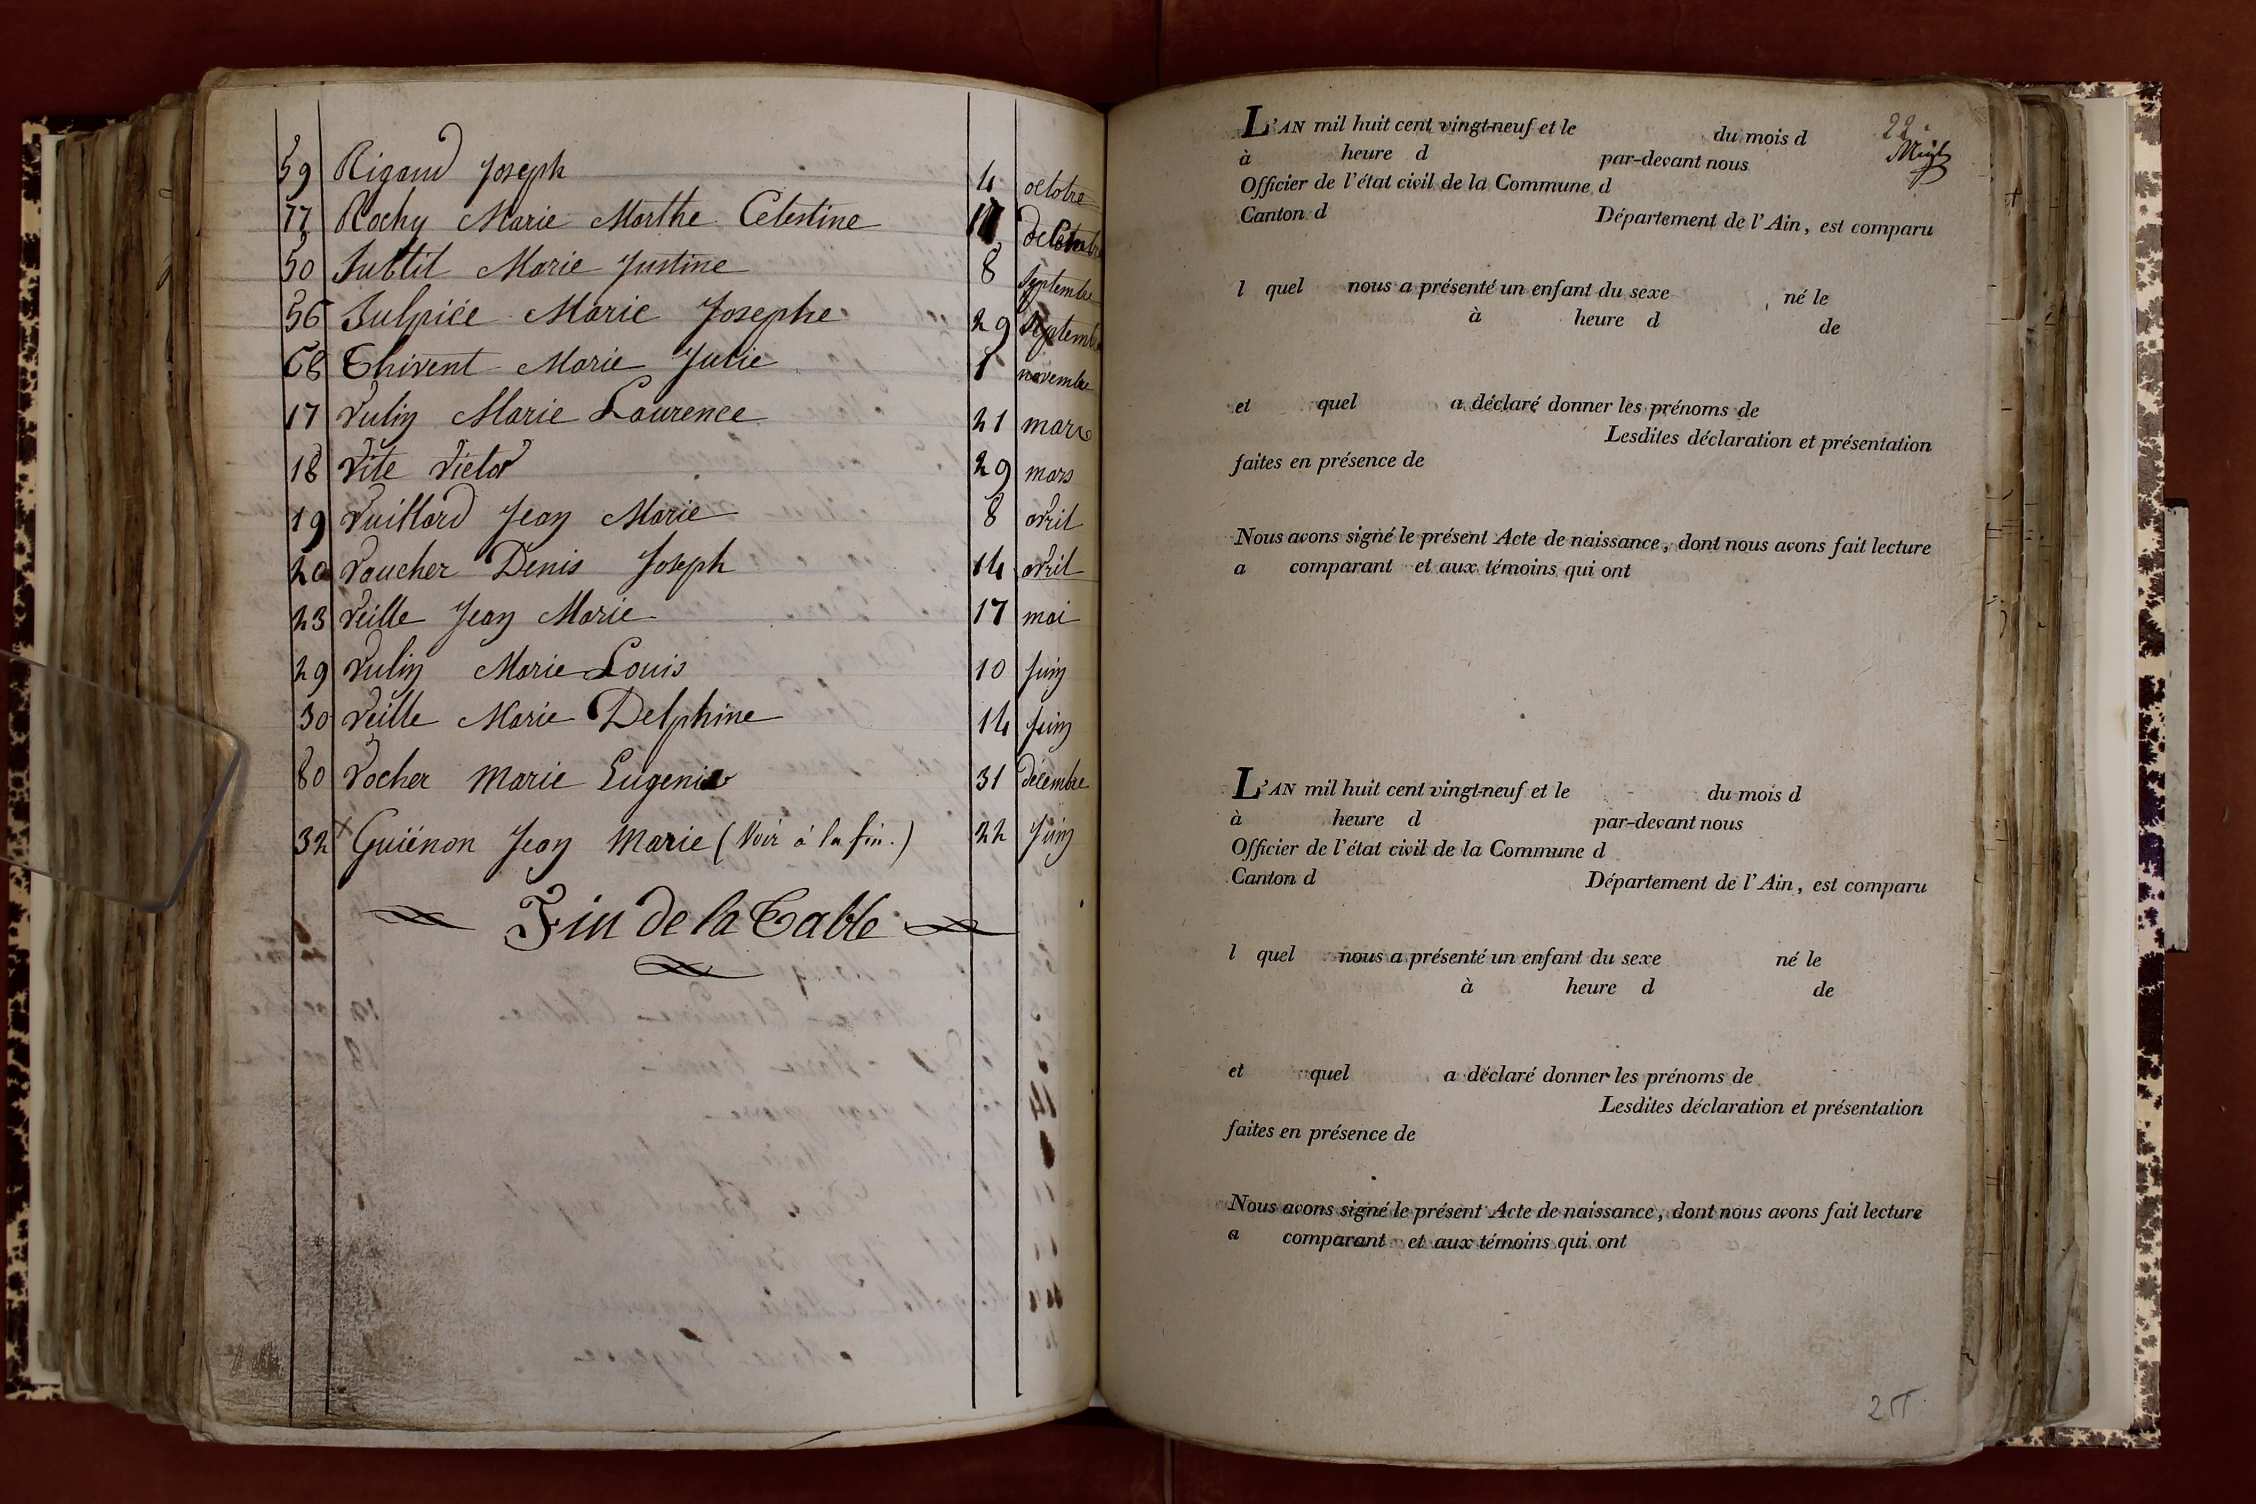 59 Rigaud Joseph 4 octobre
77 Rochy Marie Marthe Celestine
50 Subtil Marie Justine 8 Septembre
56 Sulpice Marie Josephe 29 Septembre
68 Thivent Marie Julie 1 novembre
17 Vulin Marie Laurence 21 mars
18 Vite Victor 29 mars
19 Vuillard Jean Marie 8 avril
20 Vaucher Denis Joseph 14 avril
23 Veille Jean Marie 17 mai
29 Vulin Marie Louis 10 Juin
30 Veille Marie Delphine 14 Juin
80 Vocher Marie Eugenie 31 décembre
32 Guiénon Jean Marie (Voir à la fin.) 22 Juin
Fin de la Table
22
L'AN mil huit cent vingt-neuf et le du mois d
à heure d par-devant nous
Officier de l'état civil de la Commune d
Canton d Département de l'Ain, est comparu
l quel nous a présenté un enfant du sexe né le
à heure d de
et quel a déclaré donner les prénoms de
Lesdites déclaration et présentation
faites en présence de
Nous avons signé le présent Acte de naissance, dont nous avons fait lecture
a comparant et aux témoins qui ont
L'AN mil huit cent vingt-neuf et le du mois d
à heure d par-devant nous
Officier de l'état civil de la Commune d
Canton d Département de l'Ain, est comparu
l quel nous a présenté un enfant du sexe né le
à heure d de
et quel a déclaré donner les prénoms de
Lesdites déclaration et présentation
faites en présence de
Nous avons signé le présent Acte de naissance, dont nous avons fait lecture
a comparant et aux témoins qui ont